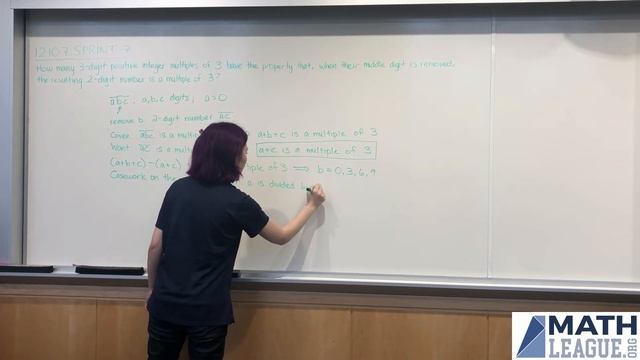 12107 SPRINT 7
How many 3-digit positive integer multiples of 3 have the property that, when their middle digit is removed,
the resulting 2-digit number is a multiple of 3?
abc, a,b,c digits, a>0
remove b 2-digit number ac
Given abc is a mult a+b+c is a multiple of 3
Want ac is a mult a+c is a multiple of 3
(a+b+c)-(a+c) tiple of 3 ⟹ b = 0,3,6,9
Casework on the a is divided b
MATH
LEAGUE.ORG